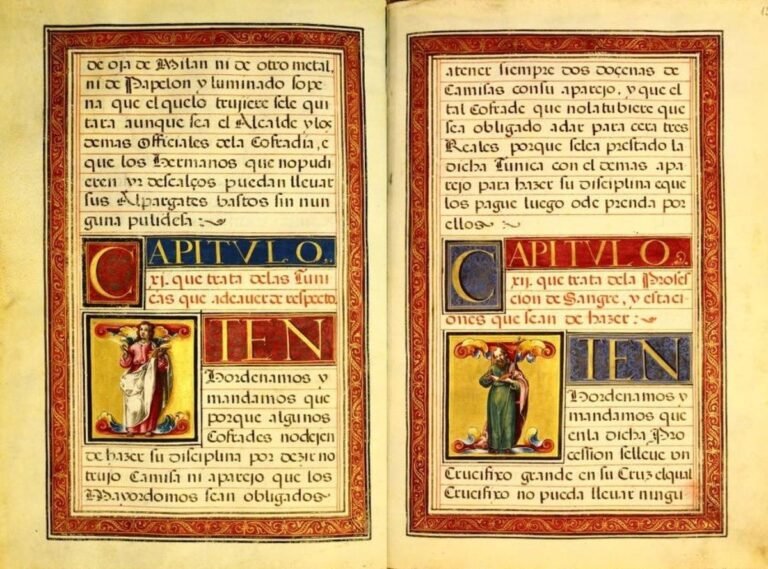 de oja de Milan ni de otro metal,
ni de Papelon y luminado so pe
na que el que lo trujiere se le qui
tara aunque sea el Alcalde y los
demas Officiales dela Cofradia, e
que los Hermanos que no pudi
eren yr descalços puedan lleuar
sus Alpargates bastos sin nun
guna pulidesa:
CAPITVLO.
xj. que trata delas Tuni
cas que adeauer de respecto.
ITEN
Hordenamos y
mandamos que
porque algunos
Cofrades no dejen
de hazer su disciplina por dezir no
trujo Camisa ni aparejo que los
Mayordomos sean obligados
atener siempre dos doçenas de
Camisas con su aparejo, y que el
tal Cofrade que no la tubiere que
sea obligado adar para cera tres
Reales porque se lea prestado la
dicha Tunica con el demas apa
rejo para hazer su disciplina e que
los pague luego o de prenda por
ellos
CAPITVLO.
xij. que trata dela Proses
cion de Sangre, y estaci
ones que sean de hazer:
ITEN
Hordenamos y
mandamos que
en la dicha Pro
cession se lleue vn
Crucifixo grande en su Cruz el qual
Crucifixo no pueda lleuar ningu